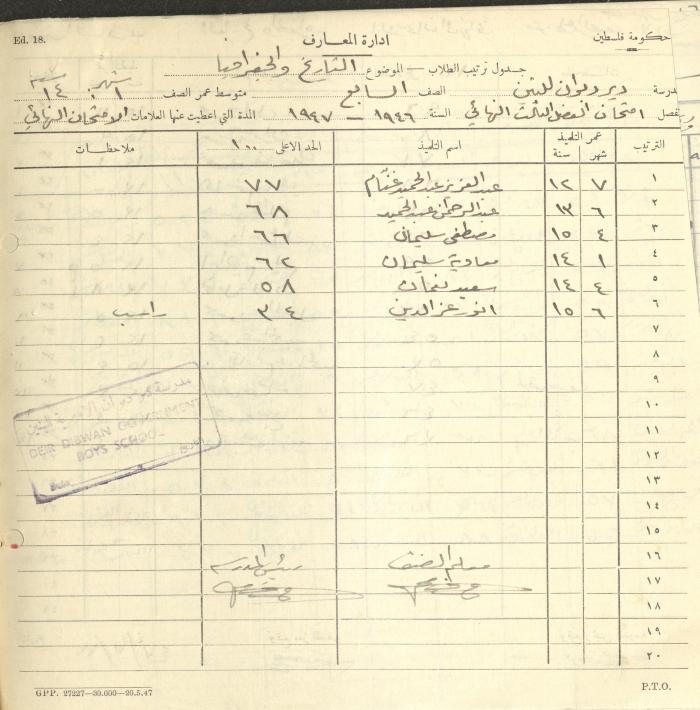 Ed. 18.
حكومة فلسطين
ادارة المعارف
جدول ترتيب الطلاب — الموضوع التاريخ والجغرافيا
مدرسة دير دبوان للبنين الصف السابع متوسط عمر الصف ١ شهر ١٤ سنة
امتحان الفصل الثالث النهائي السنة ١٩٤٦ – ١٩٤٧ المدة التي اعطيت عنها العلامات الامتحان النهائي
الترتيب عمر التلميذ شهر سنة اسم التلميذ الحد الاعلى ١٠٠ ملاحظات
١ ٧ ١٢ عبد العزيز عبد الحميد غنام ٧٧
٢ ٦ ١٣ عبد الرحمن عبد الحميد ٦٨
٣ ٤ ١٥ مصطفى سليمان ٦٦
٤ ١ ١٤ معاوية سليمان ٦٢
٥ ٤ ١٤ سعيد نعمان ٥٨
٦ ٦ ١٥ انور عز الدين ٣٤ راسب
٧
٨
٩
١٠
١١
١٢
١٣
١٤
١٥
١٦ معلم الصف رئيس المدرسة
١٧
١٨
١٩
٢٠
DEIR DIBWAN GOVERNMENT
BOYS SCHOOL
GPP. 27227—30.000—20.5.47
P.T.O.